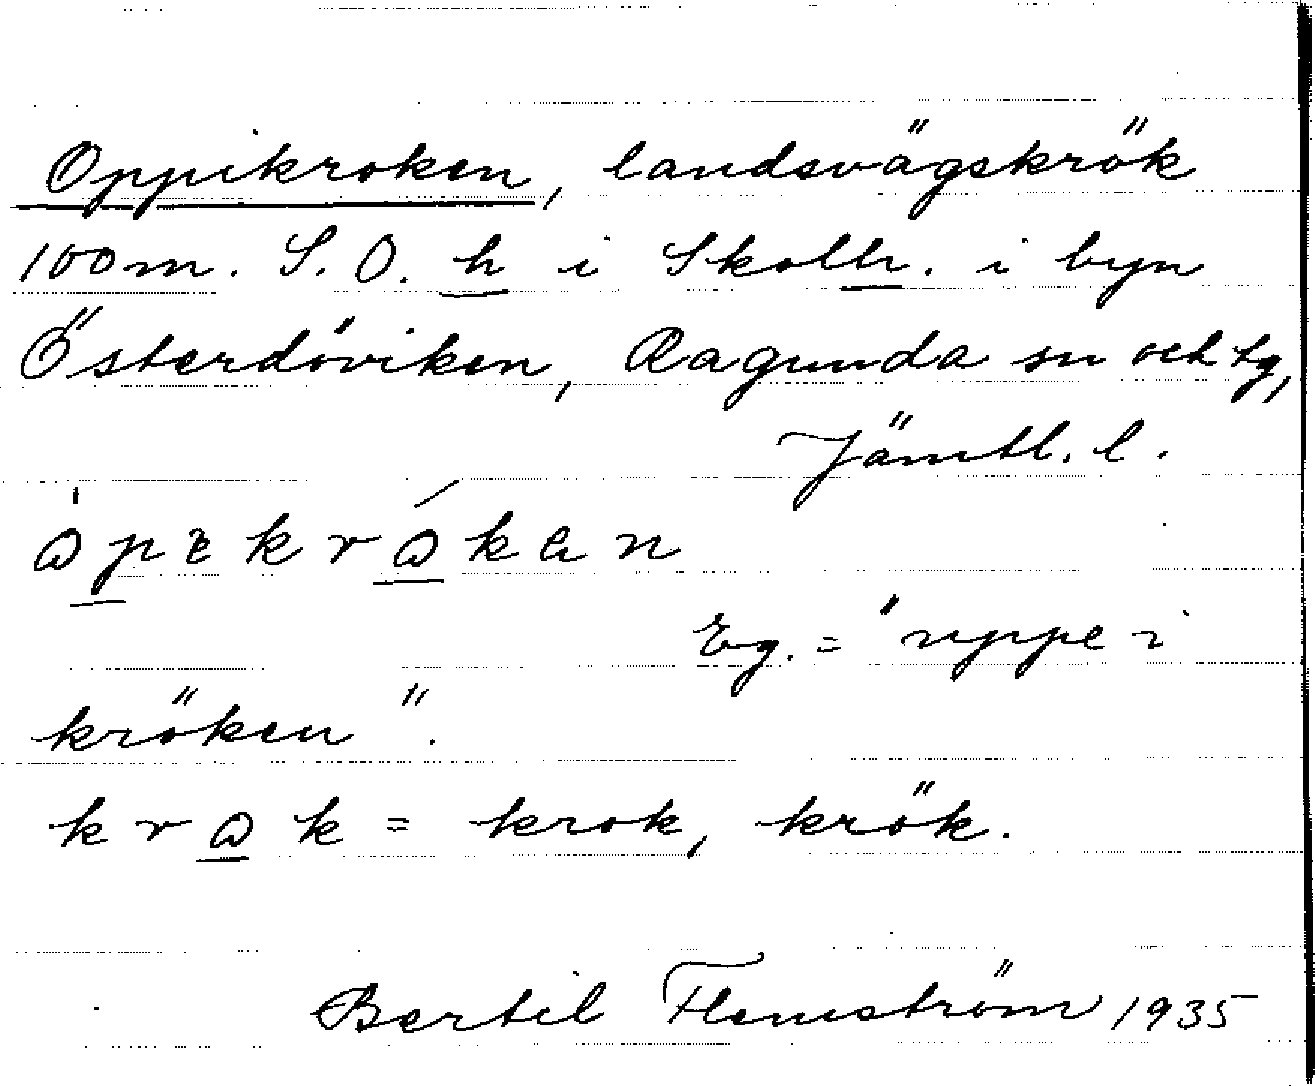 Oppikroken, landsvägskrök
100m. S.O. h i Skollr. i byn
Österdöviken, Ragunda sn och tg,
Jämtl. l.
Eg. = "uppe i
kröken".
= krok, krök.
Bertil Flemström 1935